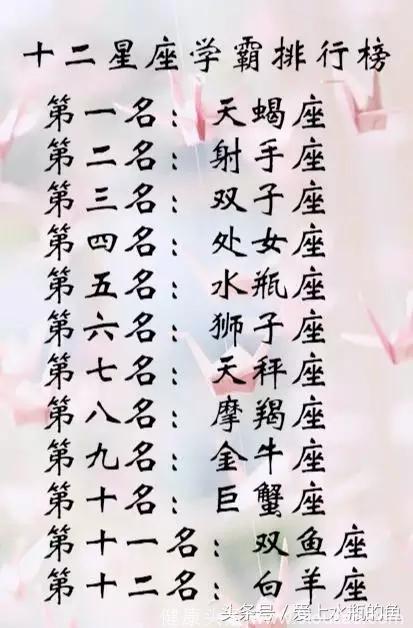 十二星座学霸排行榜
第一名：天蝎座
第二名：射手座
第三名：双子座
第四名：处女座
第五名：水瓶座
第六名：狮子座
第七名：天秤座
第八名：摩羯座
第九名：金牛座
第十名：巨蟹座
第十一名：双鱼座
第十二名：白羊座
头条号/爱上水瓶的鱼